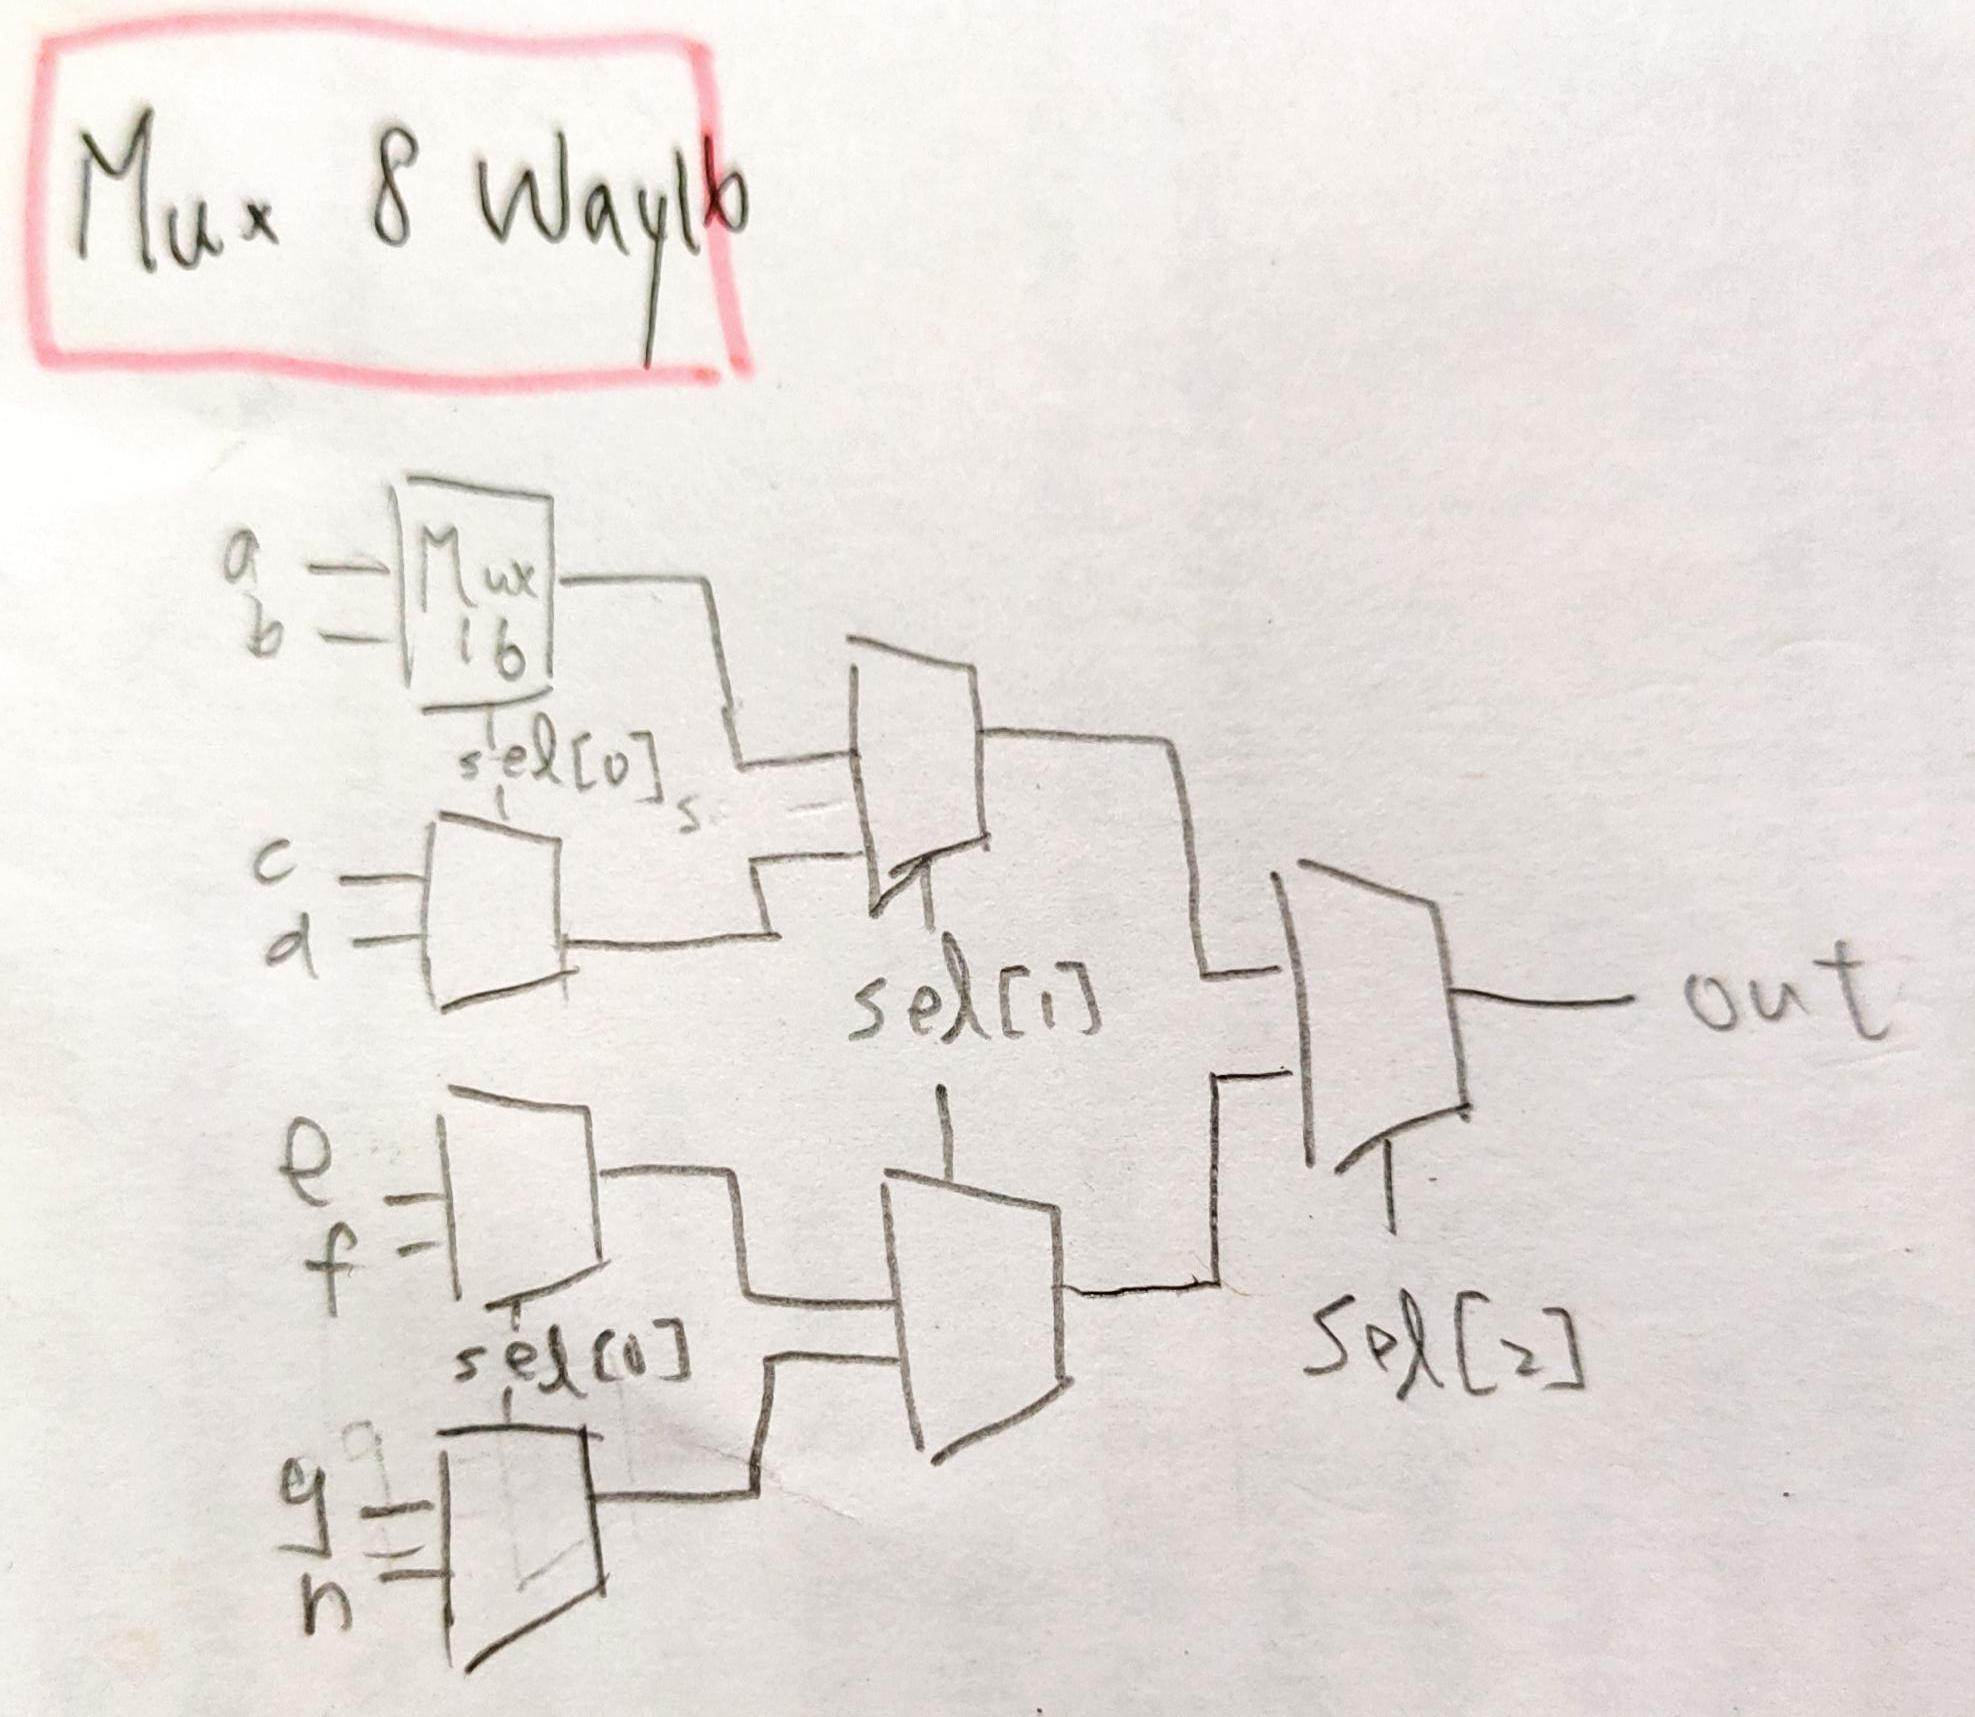 Mux 8 Way16
a
b
Mux
16
sel[0]
s
c
d
sel[1]
out
e
f
sel[0]
sel[2]
g
h